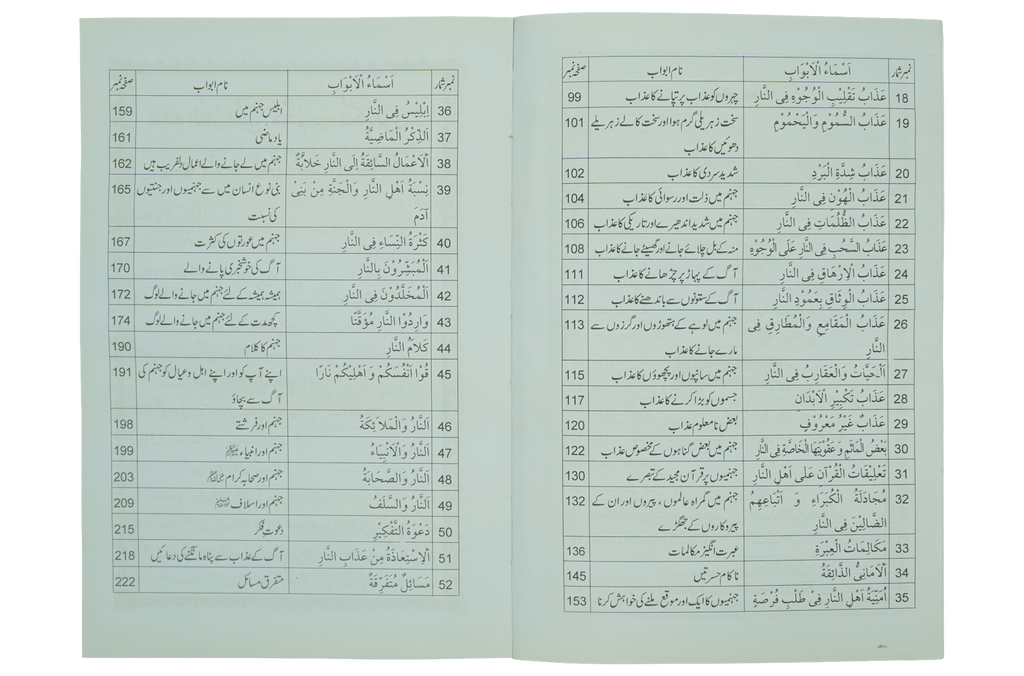 نمبر شمار اَسْمَاءُ الْاَبْوَابِ نام ابواب صفحہ نمبر
18 عَذَابُ تَقْلِيْبِ الْوُجُوْهِ فِى النَّارِ چہروں کو عذاب پر تپانے کا عذاب 99
19 عَذَابُ السُّمُوْمِ وَالْيَحْمُوْمِ سخت زہریلی گرم ہوا اور سخت کالے زہریلے 101
دھوئیں کا عذاب
20 عَذَابُ شِدَّةِ الْبَرْدِ شدید سردی کا عذاب 102
21 عَذَابُ الْهُوْنِ فِى النَّارِ جہنم میں ذلت اور رسوائی کا عذاب 104
22 عَذَابُ الظُّلُمَاتِ فِى النَّارِ جہنم میں شدید اندھیرے اور تاریکی کا عذاب 106
23 عَذَابُ السَّحْبِ فِى النَّارِ عَلَى الْوُجُوْهِ منہ کے بل چلائے جانے اور گھسیٹے جانے کا عذاب 108
24 عَذَابُ الْاِرْهَاقِ فِى النَّارِ آگ کے پہاڑ پر چڑھانے کا عذاب 111
25 عَذَابُ الْوِثَاقِ بِعَمُوْدِ النَّارِ آگ کے ستونوں سے باندھنے کا عذاب 112
26 عَذَابُ الْمَقَامِعِ وَالْمَطَارِقِ فِى جہنم میں لوہے کے ہتھوڑوں اور گرزوں سے 113
النَّارِ مارے جانے کا عذاب
27 اَلْحَيَّاتُ وَالْعَقَارِبُ فِى النَّارِ جہنم میں سانپوں اور بچھوؤں کا عذاب 115
28 عَذَابُ تَكْبِيْرِ الْاَبْدَانِ جسموں کو بڑا کرنے کا عذاب 117
29 عَذَابٌ غَيْرُ مَعْرُوْفٍ بعض نامعلوم عذاب 120
30 بَعْضُ الْمَاٰثِمِ وَعَقُوْبَتِهَا الْخَاصَّةِ فِى النَّارِ جہنم میں بعض گناہوں کے مخصوص عذاب 122
31 تَعْلِيْقَاتُ الْقُرْآنِ عَلٰى اَهْلِ النَّارِ جہنمیوں پر قرآن مجید کے تبصرے 130
32 مُجَادَلَةُ الْكُبَرَاءِ وَ اَتْبَاعِهِمُ جہنم میں گمراہ عالموں، پیروں اور ان کے 132
الضَّالِّيْنَ فِى النَّارِ پیروکاروں کے جھگڑے
33 مَكَالِمَاتُ الْعِبْرَةِ عبرت انگیز مکالمات 136
34 اَلْاَمَانِىُّ الذَّائِقَةُ ناکام حسرتیں 145
35 اُمْنِيَّةُ اَهْلِ النَّارِ فِىْ طَلْبِ فُرْصَةٍ جہنمیوں کا ایک اور موقع ملنے کی خواہش کرنا 153
نمبر شمار اَسْمَاءُ الْاَبْوَابِ نام ابواب صفحہ نمبر
36 اِبْلِيْسُ فِى النَّارِ ابلیس جہنم میں 159
37 اَلذِّكْرُ الْمَاضِيَّةُ یاد ماضی 161
38 اَلْاَعْمَالُ السَّائِقَةُ اِلَى النَّارِ خَلَّابَةٌ جہنم میں لے جانے والے اعمال دلفریب ہیں 162
39 نِسْبَةُ اَهْلِ النَّارِ وَالْجَنَّةِ مِنْ بَنِىْ بنی نوع انسان میں سے جہنمیوں اور جنتیوں 165
آدَمَ کی نسبت
40 كَثْرَةُ النِّسَاءِ فِى النَّارِ جہنم میں عورتوں کی کثرت 167
41 اَلْمُبَشِّرُوْنَ بِالنَّارِ آگ کی خوشخبری پانے والے 170
42 اَلْمُخَلَّدُوْنَ فِى النَّارِ ہمیشہ ہمیشہ کے لئے جہنم میں جانے والے لوگ 172
43 وَارِدُوا النَّارِ مُؤَقَّتًا کچھ مدت کے لئے جہنم میں جانے والے لوگ 174
44 كَلَامُ النَّارِ جہنم کا کلام 190
45 قُوْا اَنْفُسَكُمْ وَ اَهْلِيْكُمْ نَارًا اپنے آپ کو اور اپنے اہل و عیال کو جہنم کی 191
آگ سے بچاؤ
46 اَلنَّارُ وَالْمَلَائِكَةُ جہنم اور فرشتے 198
47 اَلنَّارُ وَالْاَنْبِيَاءُ جہنم اور انبیاء 199
48 اَلنَّارُ وَالصَّحَابَةُ جہنم اور صحابہ کرام 203
49 اَلنَّارُ وَالسَّلَفُ جہنم اور اسلاف 209
50 دَعْوَةُ التَّفْكِيْرِ دعوت فکر 215
51 اَلْاِسْتِعَاذَةُ مِنْ عَذَابِ النَّارِ آگ کے عذاب سے پناہ مانگنے کی دعائیں 218
52 مَسَائِلُ مُتَفَرِّقَةٌ متفرق مسائل 222